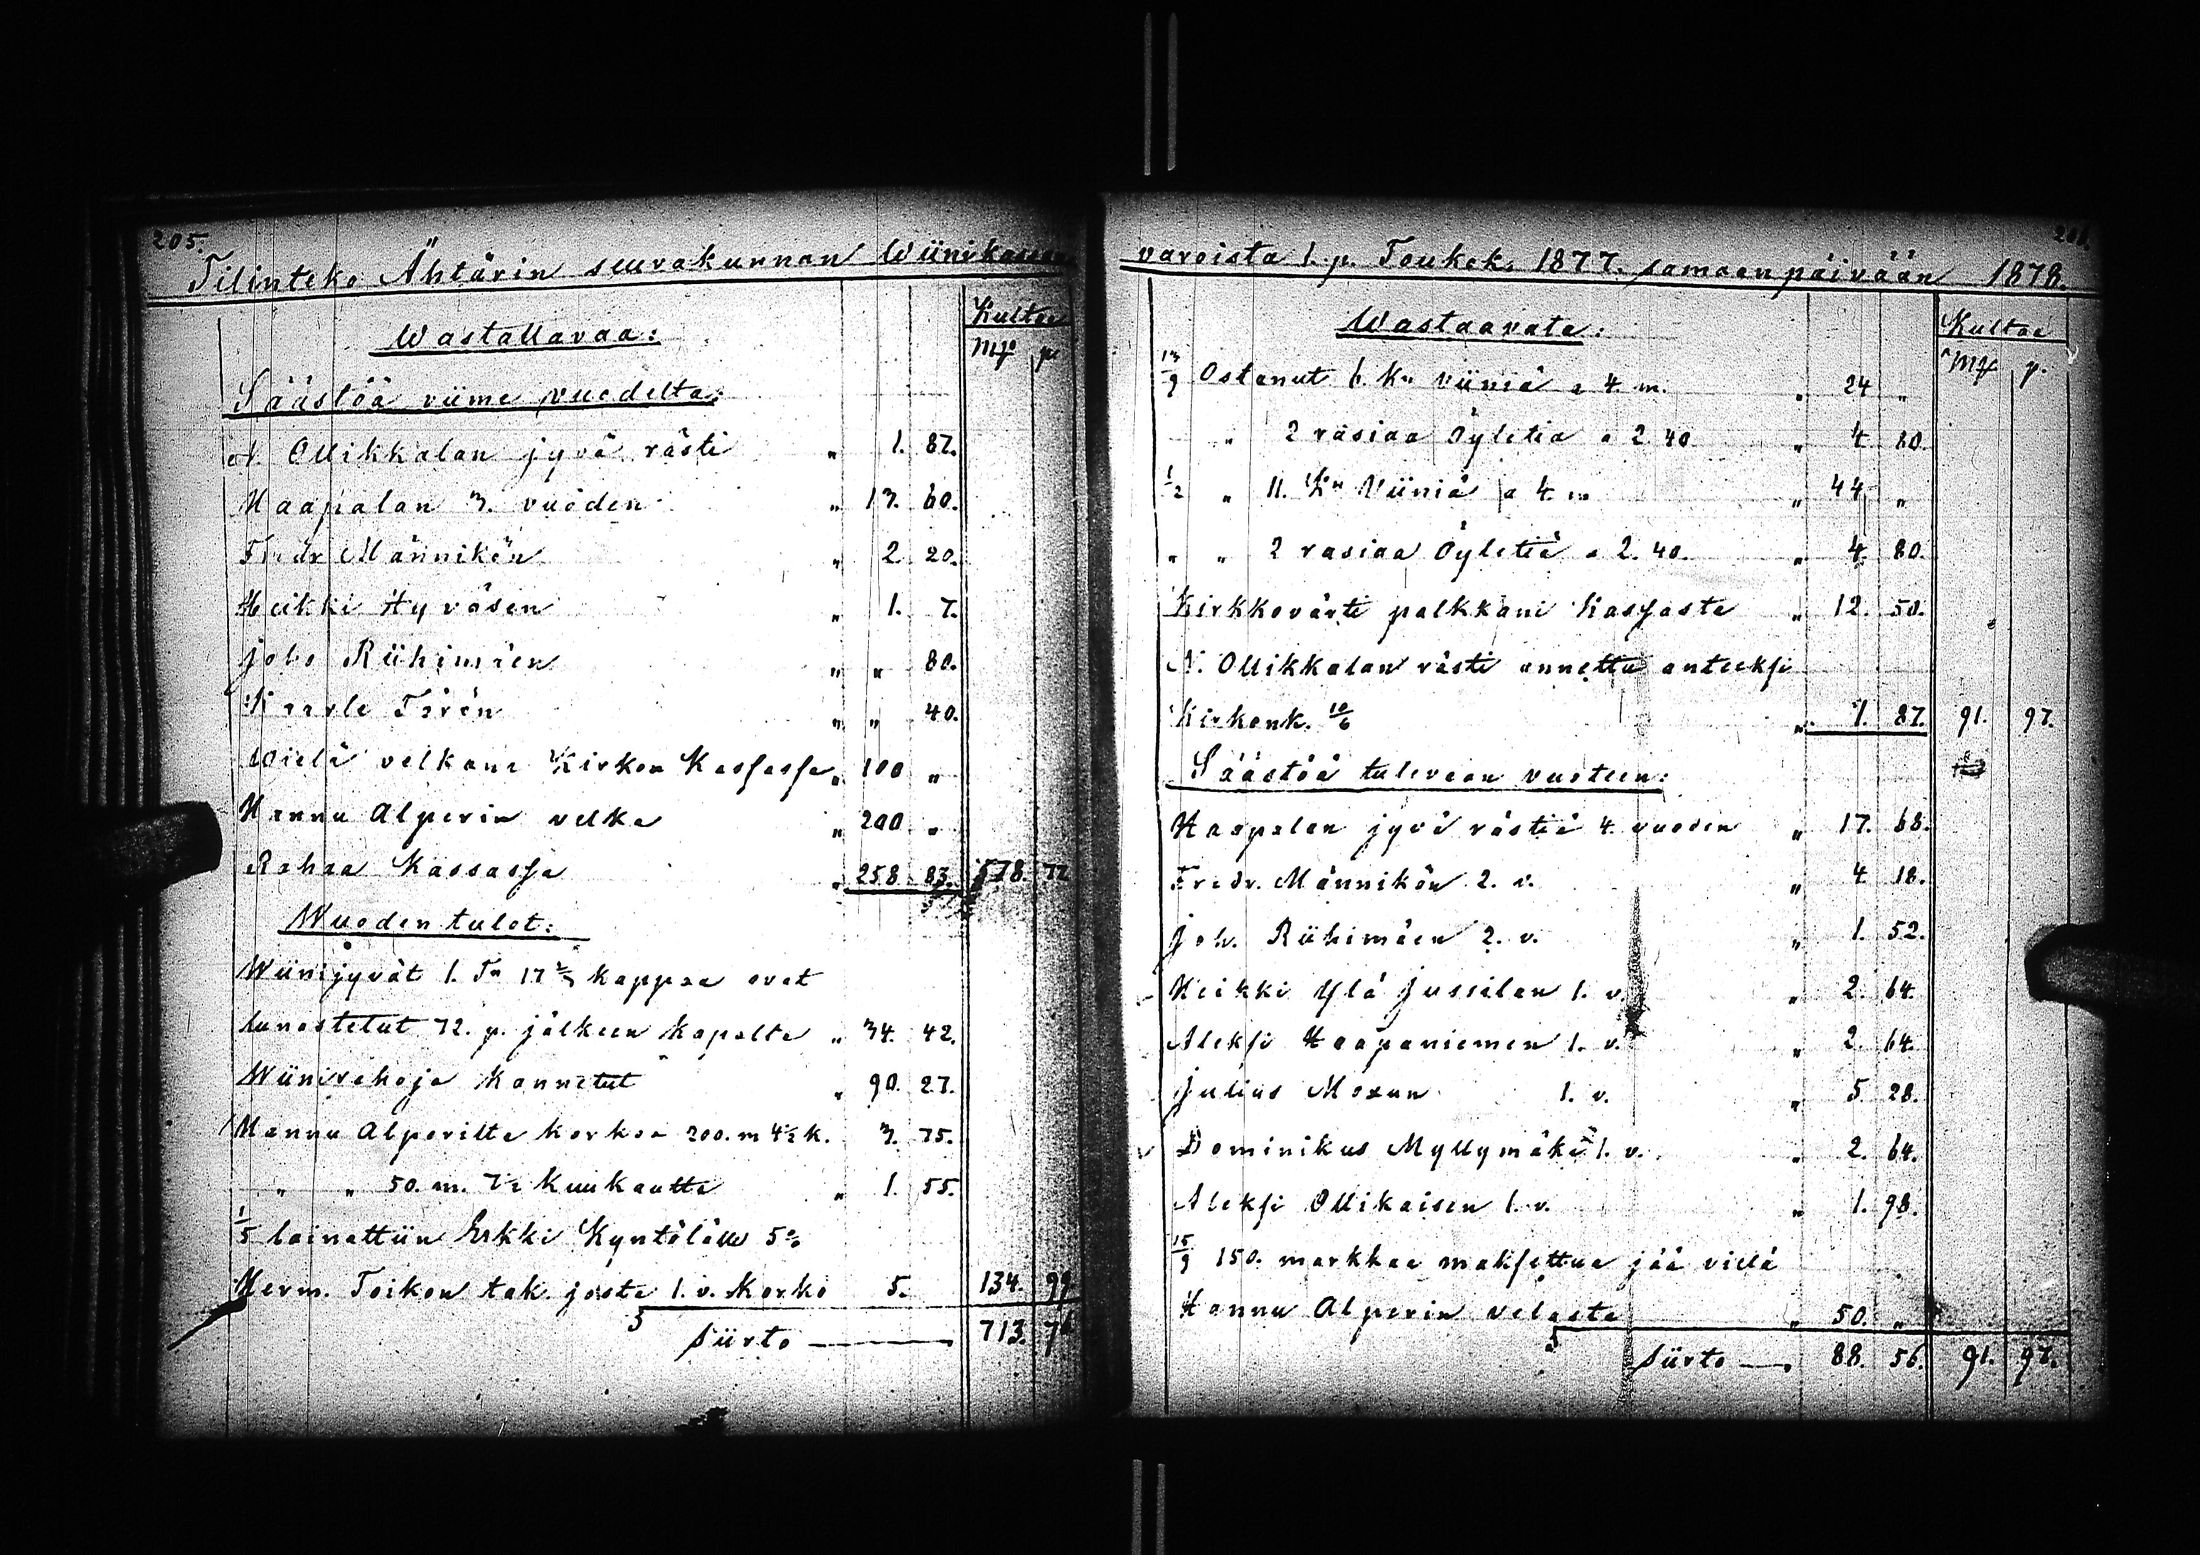 205.
Tilinteko Ähtärin seurakunnan Wiinikassan
Kultaa
Wastattavaa:
Mk p
Säästöä viime vuodelta:
N. Ollikkalan jyvä rästi " 1. 87.
Haapalan 3. vuoden " 13. 60.
Fredr Männikön " 2. 20.
Heikki Hyväsen " 1. 7.
Joho Riihimäen " " 80.
Kaarle Tärén " " 40.
Wielä velkana Kirkon Kassassa " 100 "
Hannu Alperin velka " 200 "
Rahaa Kassassa " 258 83. 578. 77
Wuoden tulot:
Wiinijyvät 1. Tn 17 2/3 kappaa ovat
lunastetut 72. p. jälkeen kapalta " 34. 42.
Wiinirahoja Kannetut " 90. 27.
Hannu Alperilta korkoa 200. m 4½ k. 3. 75.
" " 50. m. 7½ Kuukautta " 1. 55.
1/5 lainattiin Erkki Kyntölälle 5%
Herm. Toikon tak. josta 1. v. Korko 5. 134. 99
Siirto — 713. 76
206.
varoista 1. p. Toukok. 1877. samaan päivään 1878.
Wastaavata:
Kultaa
Mk p.
13/9 Ostanut 6. Kn viiniä a 4. m. " 24 "
" 2 rasiaa Öylätiä a 2 40 " 4. 80.
1/2 " 11. Kn Viiniä a 4 m " 44 "
" " 2 rasiaa Öylätiä a 2. 40. " 4. 80.
Kirkkovärti palkkani Kassasta " 12. 50.
N. Ollikkalan rästi annettu anteeksi
Kirkonk. 10/6 " 1. 87. 91. 97.
Säästöä tulevaan vuoteen:
Haapalan jyvä rästiä 4. vuoden " 17. 68.
Fredr. Männikön 2. v. " 4. 18.
Joh. Riihimäen 2. v. " 1. 52.
Heikki Ylä Jussilan 1. v. " 2. 64.
Aleksi Haapaniemen 1. v. " 2. 64.
Julius Moxun 1. v. " 5. 28.
Dominikus Myllymäki 1. v. " 2. 64.
Aleksi Ollikaisen 1. v. " 1. 98.
15/9 150. markkaa maksettua jää vielä
Hannu Alperin velasta " 50. "
Siirto — 88. 56. 91. 97.